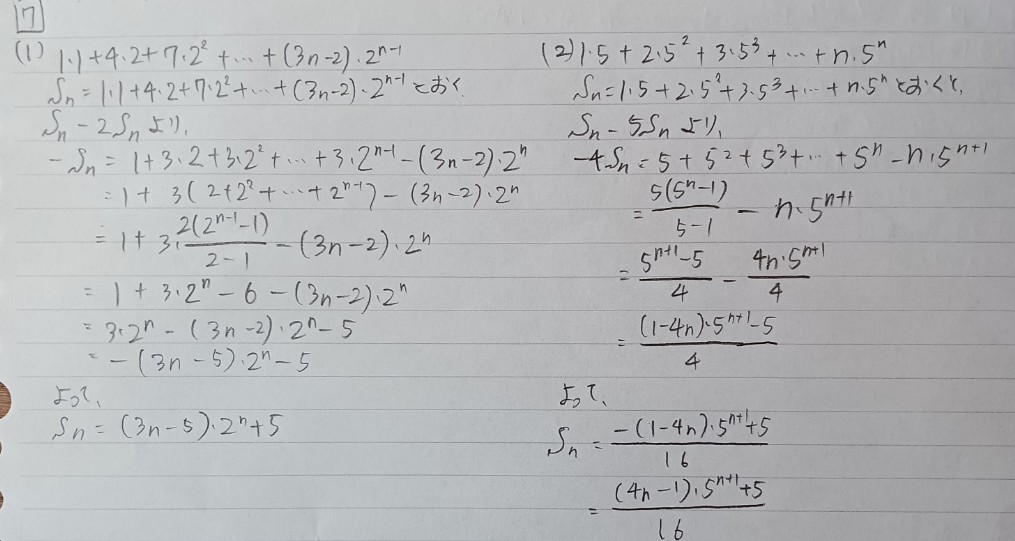 7
(1) 1・1+4・2+7・2²+…+(3n-2)・2ⁿ⁻¹
Sₙ=1・1+4・2+7・2²+…+(3n-2)・2ⁿ⁻¹とおく
Sₙ-2Sₙより、
-Sₙ=1+3・2+3・2²+…+3・2ⁿ⁻¹-(3n-2)・2ⁿ
=1+3(2+2²+…+2ⁿ⁻¹)-(3n-2)・2ⁿ
=1+3・\frac{2(2ⁿ⁻¹-1)}{2-1}-(3n-2)・2ⁿ
=1+3・2ⁿ-6-(3n-2)・2ⁿ
=3・2ⁿ-(3n-2)・2ⁿ-5
=-(3n-5)・2ⁿ-5
よって、
Sₙ=(3n-5)・2ⁿ+5
(2) 1・5+2・5²+3・5³+…+n・5ⁿ
Sₙ=1・5+2・5²+3・5³+…+n・5ⁿとおくと、
Sₙ-5Sₙより、
-4Sₙ=5+5²+5³+…+5ⁿ-n・5ⁿ⁺¹
=\frac{5(5ⁿ-1)}{5-1}-n・5ⁿ⁺¹
=\frac{5ⁿ⁺¹-5}{4}-\frac{4n・5ⁿ⁺¹}{4}
=\frac{(1-4n)・5ⁿ⁺¹-5}{4}
よって、
Sₙ=\frac{-(1-4n)・5ⁿ⁺¹+5}{16}
=\frac{(4n-1)・5ⁿ⁺¹+5}{16}